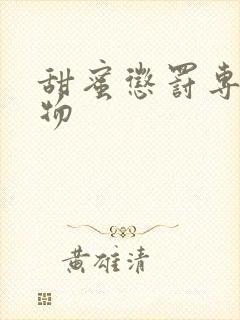 甜蜜懲罰專
物
黃雄清